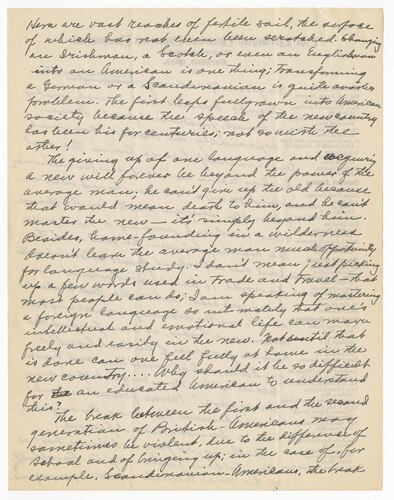 Here are vast reaches of fertile soil, the surface
of which has not even been scratched. Changing
an Irishman, a Scotch, or even an Englishman
into an American is one thing; transforming
a German or a Scandinavian is quite another
problem. The first leaps fullgrown into American
society because the speech of the new country
has been his for centuries; not so with the
other!
The giving up of one language and acquiring
a new will forever be beyond the power of the
average man; he can't give up the old because
that would mean death to him, and he can't
master the new — it's simply beyond him.
Besides, home-founding in a wilderness
doesn't leave the average man much opportunity
for language study. I don't mean just picking
up a few words used in trade and travel — that
most people can do; I am speaking of mastering
a foreign language so intimately that one's
intellectual and emotional life can move
freely and easily in the new. Not until that
is done can one feel fully at home in the
new country.... Why should it be so difficult
for an educated American to understand
this?
The break between the first and the second
generation of British-Americans may
sometimes be violent, due to the difference of
school and of bringing up; in the case of, for
example, Scandinavian-Americans, the break